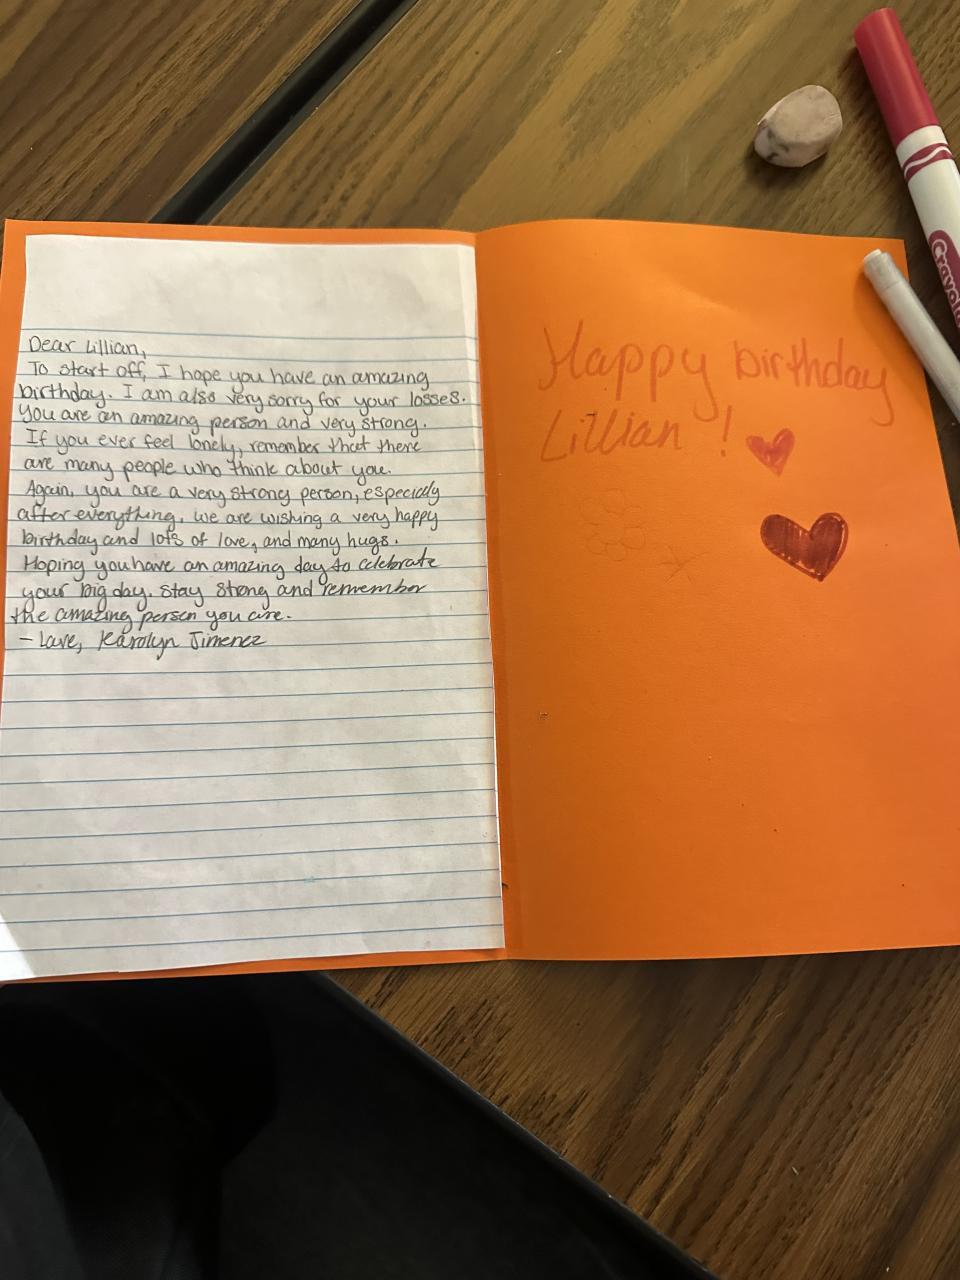 Dear Lillian,
To start off, I hope you have an amazing
birthday. I am also very sorry for your losses.
You are an amazing person and very strong.
If you ever feel lonely, remember that there
are many people who think about you.
Again, you are a very strong person, especially
after everything. we are wishing a very happy
birthday and lots of love, and many hugs.
Hoping you have an amazing day to celebrate
your big day. Stay strong and remember
the amazing person you are.
- Love, Karolyn Jimenez
Happy birthday
Lillian !
Crayola